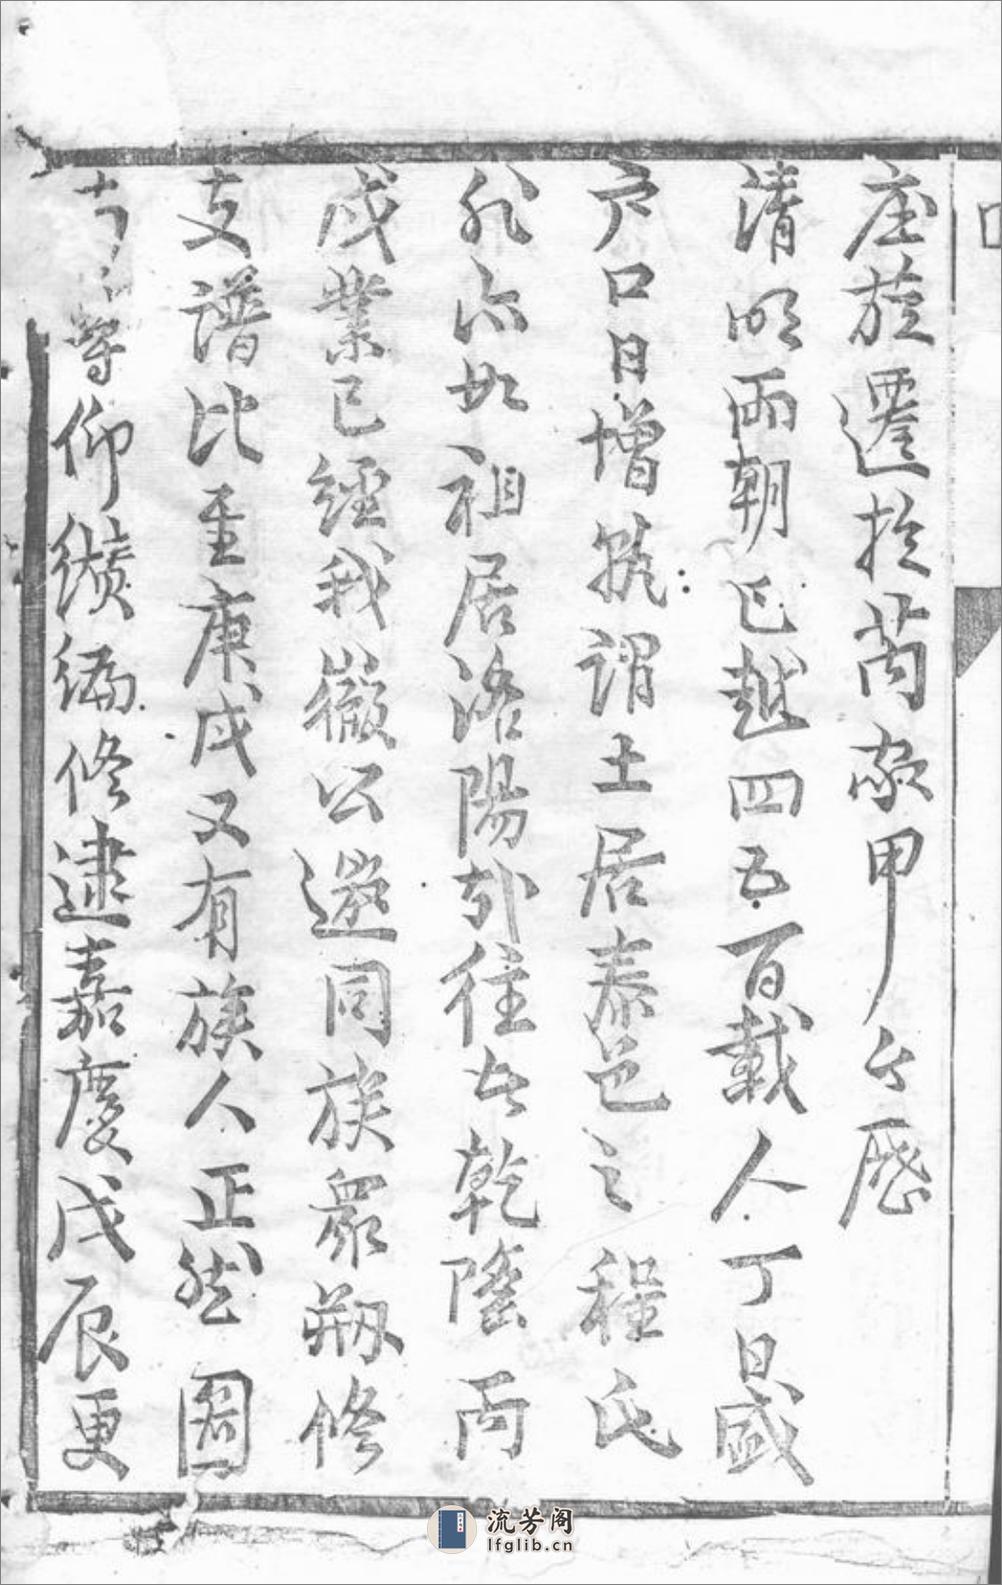 庄旋遷於芮家甲公歷
清明兩朝已越四五百載人丁日盛
户口日增孰謂土居泰邑之程氏
非亦如祖居洛陽外住者乾隆丙
戌業已經我巖公邀同族衆刱修
支譜比至庚戌又有族人正然圖
等仰纘編修逮嘉慶戊辰更
流芳阁
lfglib.cn